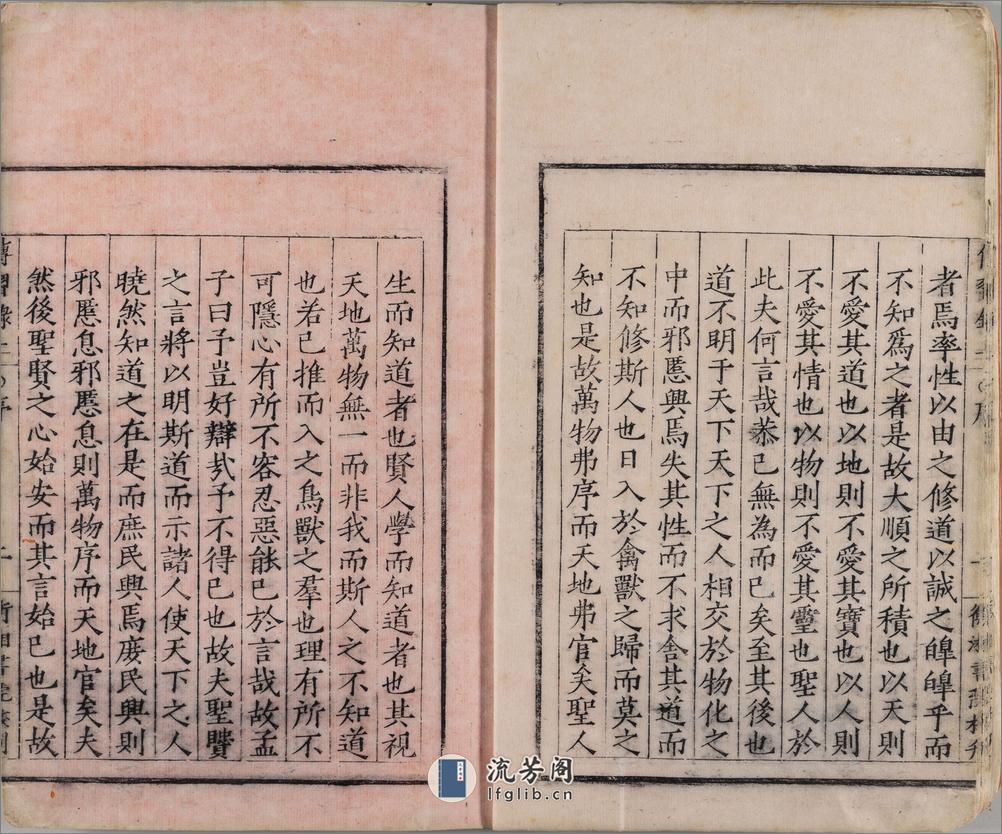 者焉率性以由之修道以誠之皥皥乎而
不知爲之者是故大順之所積也以天則
不愛其道也以地則不愛其寶也以人則
不愛其情也以物則不愛其靈也聖人於
此夫何言哉恭己無為而已矣至其後也
道不明于天下天下之人相交於物化之
中而邪慝興焉失其性而不求舍其道而
不知修斯人也日入於禽獸之歸而莫之
知也是故萬物弗序而天地弗官矣聖人
生而知道者也賢人學而知道者也其視
天地萬物無一而非我而斯人之不知道
也若己推而入之鳥獸之羣也理有所不
可隱心有所不容忍惡能已於言哉故孟
子曰予豈好辯哉予不得已也故夫聖賢
之言將以明斯道而示諸人使天下之人
曉然知道之在是而庶民興焉庶民興則
邪慝息邪慝息則萬物序而天地官矣夫
然後聖賢之心始安而其言始已也是故
傳習錄
流芳阁
lfglib.cn